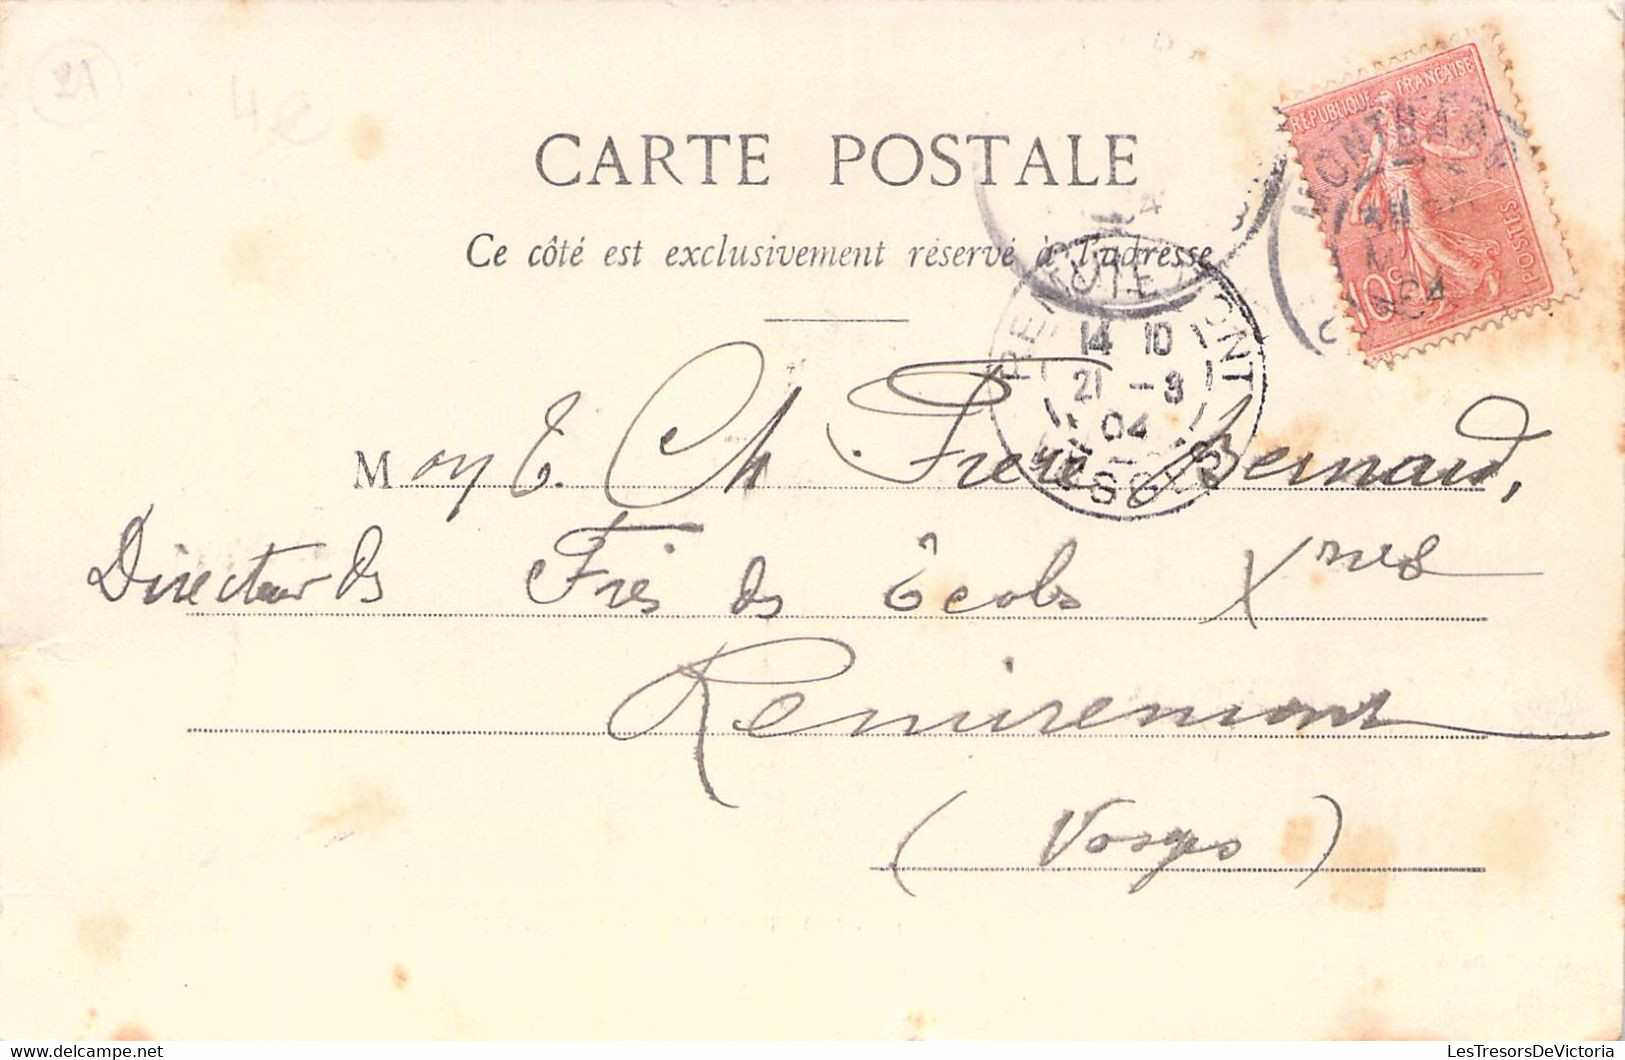 21
4e
CARTE POSTALE
Ce côté est exclusivement réservé à l'adresse
RÉPUBLIQUE FRANÇAISE
POSTES
10c
REMIREMONT
14 10
21 -3
04
VOSGES
Mon T. Ch Frère Bernard,
Directeur des Frès des Écoles Xnes
Remiremont
(Vosges)
LesTresorsDeVictoria